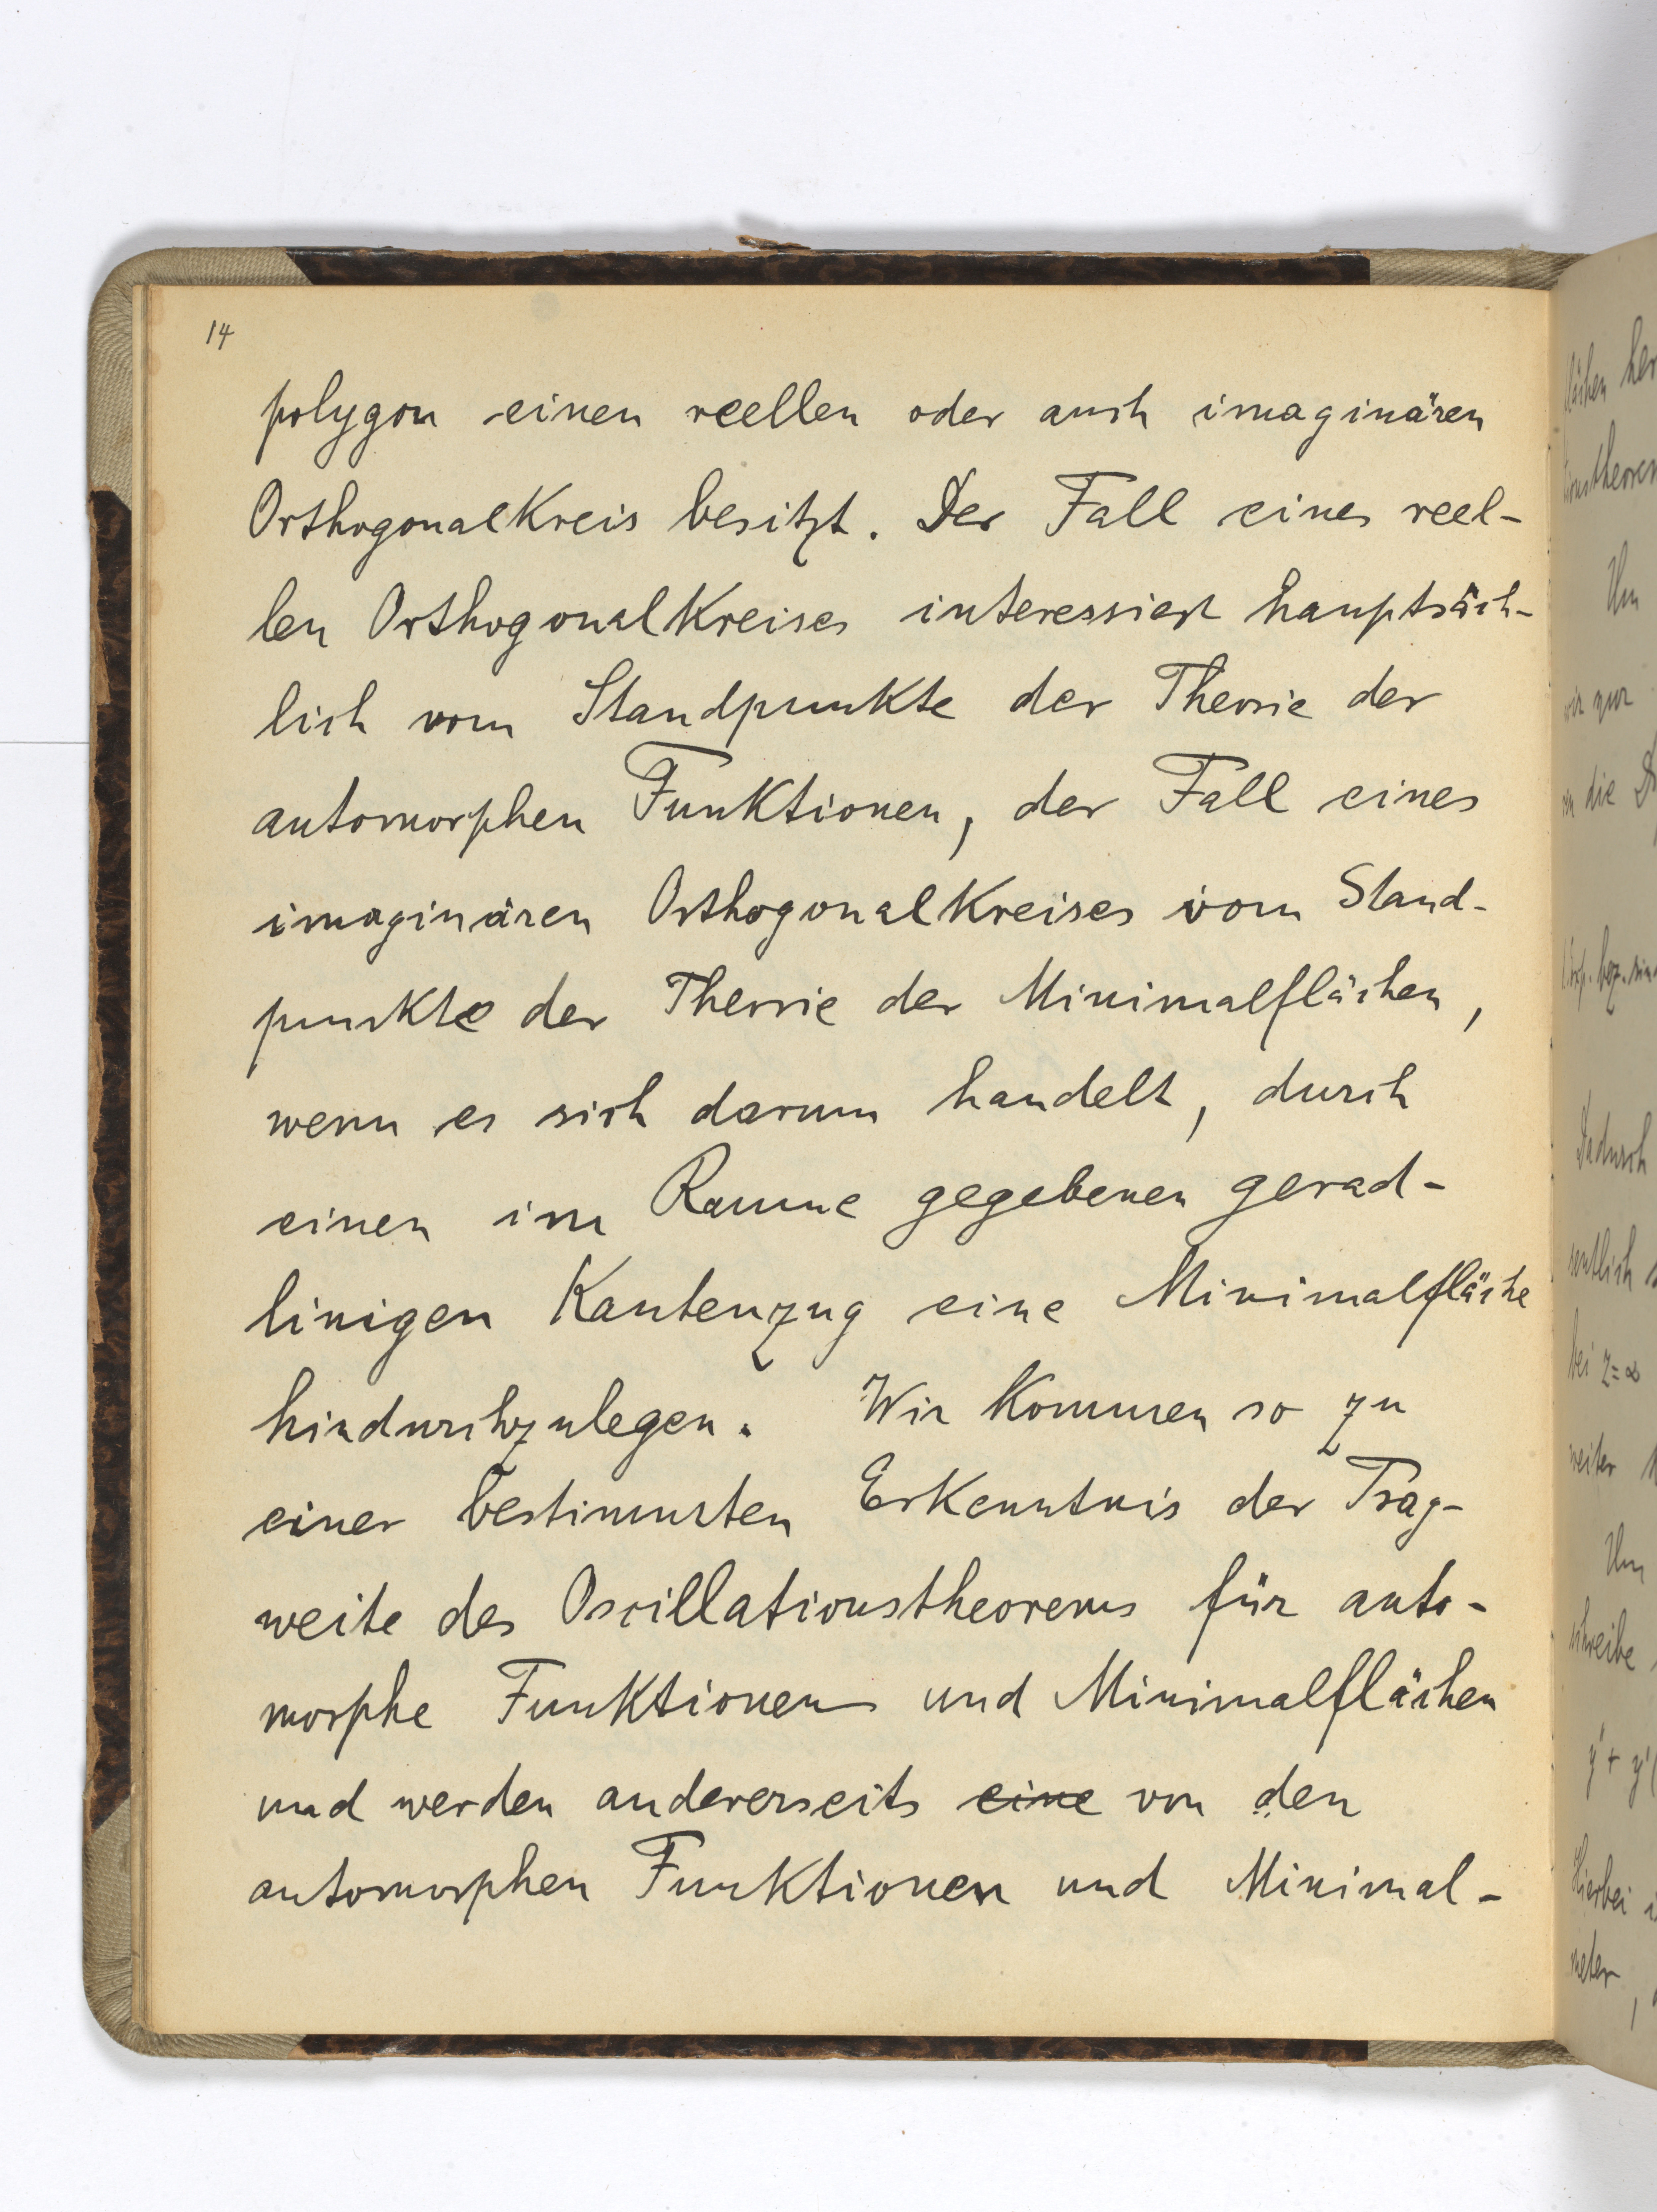 14
polygon einen reellen oder auch imaginären
Orthogonalkreis besitzt. Der Fall eines reel-
len Orthogonalkreises interessiert hauptsäch-
lich vom Standpunkte der Theorie der
automorphen Funktionen, der Fall eines
imaginären Orthogonalkreises vom Stand-
punkte der Theorie der Minimalflächen,
wenn es sich darum handelt, durch
einen im Raume gegebenen gerad-
linigen Kantenzug eine Minimalfläche
hindurchzulegen. Wir kommen so zu
einer bestimmten Erkenntnis der Trag-
weite des Oscillationstheorems für auto-
morphe Funktionen und Minimalflächen
und werden andererseits eine von den
automorphen Funktionen und Minimal-
Um
wir zur
die
Dadurch
bei z=∞
weiter
Um
Hierbei